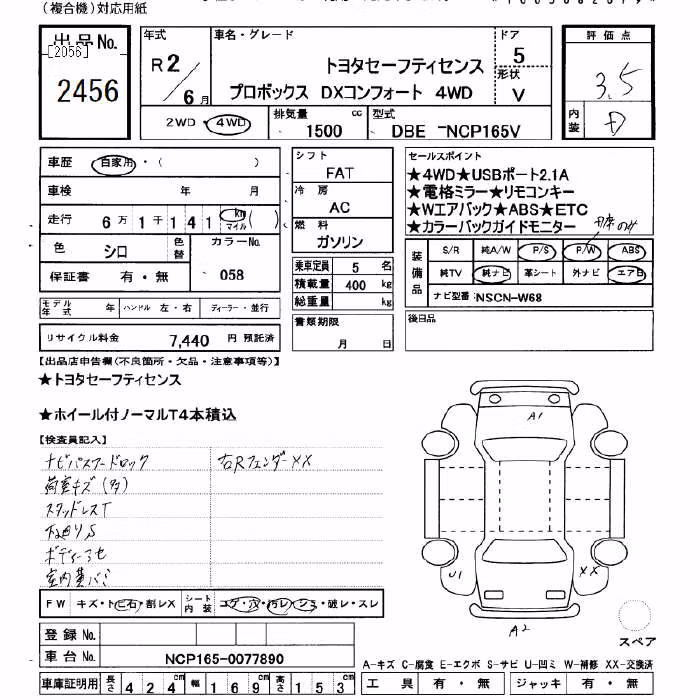 (複合機)対応用紙
出品No.
[2056]
2456
年式
R2/6月
車名・グレード
トヨタセーフティセンス
プロボックス DXコンフォート 4WD
ドア
5
形状
V
評価点
3.5
内装
D
2WD・4WD
排気量
1500 cc
型式
DBE -NCP165V
車歴
自家用・( )
車検 年 月
走行 6万1千141 km マイル ( )
色 シロ 色替
カラーNo.
058
保証書 有・無
シフト
FAT
冷房
AC
燃料
ガソリン
乗車定員 5 名
積載量 400 kg
総重量 kg
セールスポイント
★4WD★USBポート2.1A
★電格ミラー★リモコンキー
★Wエアバック★ABS★ETC
★カラーバックガイドモニター
装備品
S/R 純A/W P/S P/W ABS
純TV 純ナビ 革シート 外ナビ エアB
ナビ型番:NSCN-W68
モデル年式 年 ハンドル 左・右 ディーラー・並行
リサイクル料金 7,440 円 預託済
書類期限
月 日
後日品
【出品店申告欄(不良箇所・欠品・注意事項等)】
★トヨタセーフティセンス
★ホイール付ノーマルT4本積込
【検査員記入】
ナビパスワードロック
右Rフェンダー××
荷室キズ(多)
スタッドレスT
下廻りS
室内黄バミ
A1
U1
XX
A2
スペア
FW キズ・トビ石・割レX
シート内装 コゲ・穴・汚レ・シミ・破レ・スレ
登録No.
車台No. NCP165-0077890
車庫証明用 長さ 424cm 幅 169cm 高さ 153cm
A-キズ C-腐食 E-エクボ S-サビ U-凹ミ W-補修 XX-交換済
工具 有・無 ジャッキ 有・無